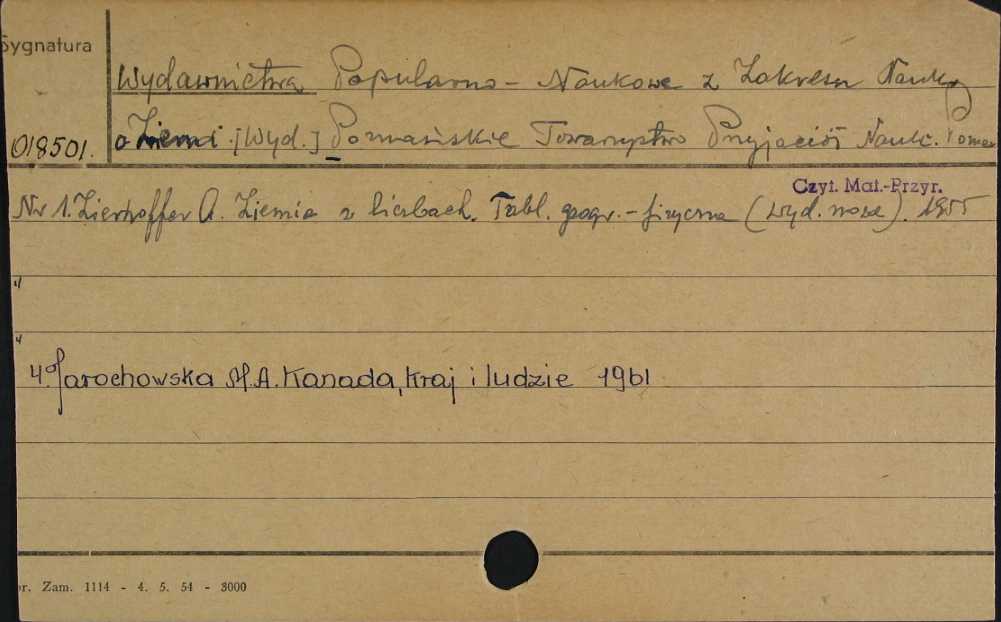 Sygnatura
Wydawnictwa Popularno-Naukowe z Zakresu Nauk
018501. o Ziemi. [Wyd.] Poznańskie Towarzystwo Przyjaciół Nauk.
Czyt. Mat.-Przyr.
Nr 1. Zierhoffer A. Ziemia w liczbach. Tabl. geogr.-fizyczne (Wyd. nowe). 1955
4. Jarochowska M.A. Kanada, kraj i ludzie 1961
Zam. 1114 - 4. 5. 54 - 3000